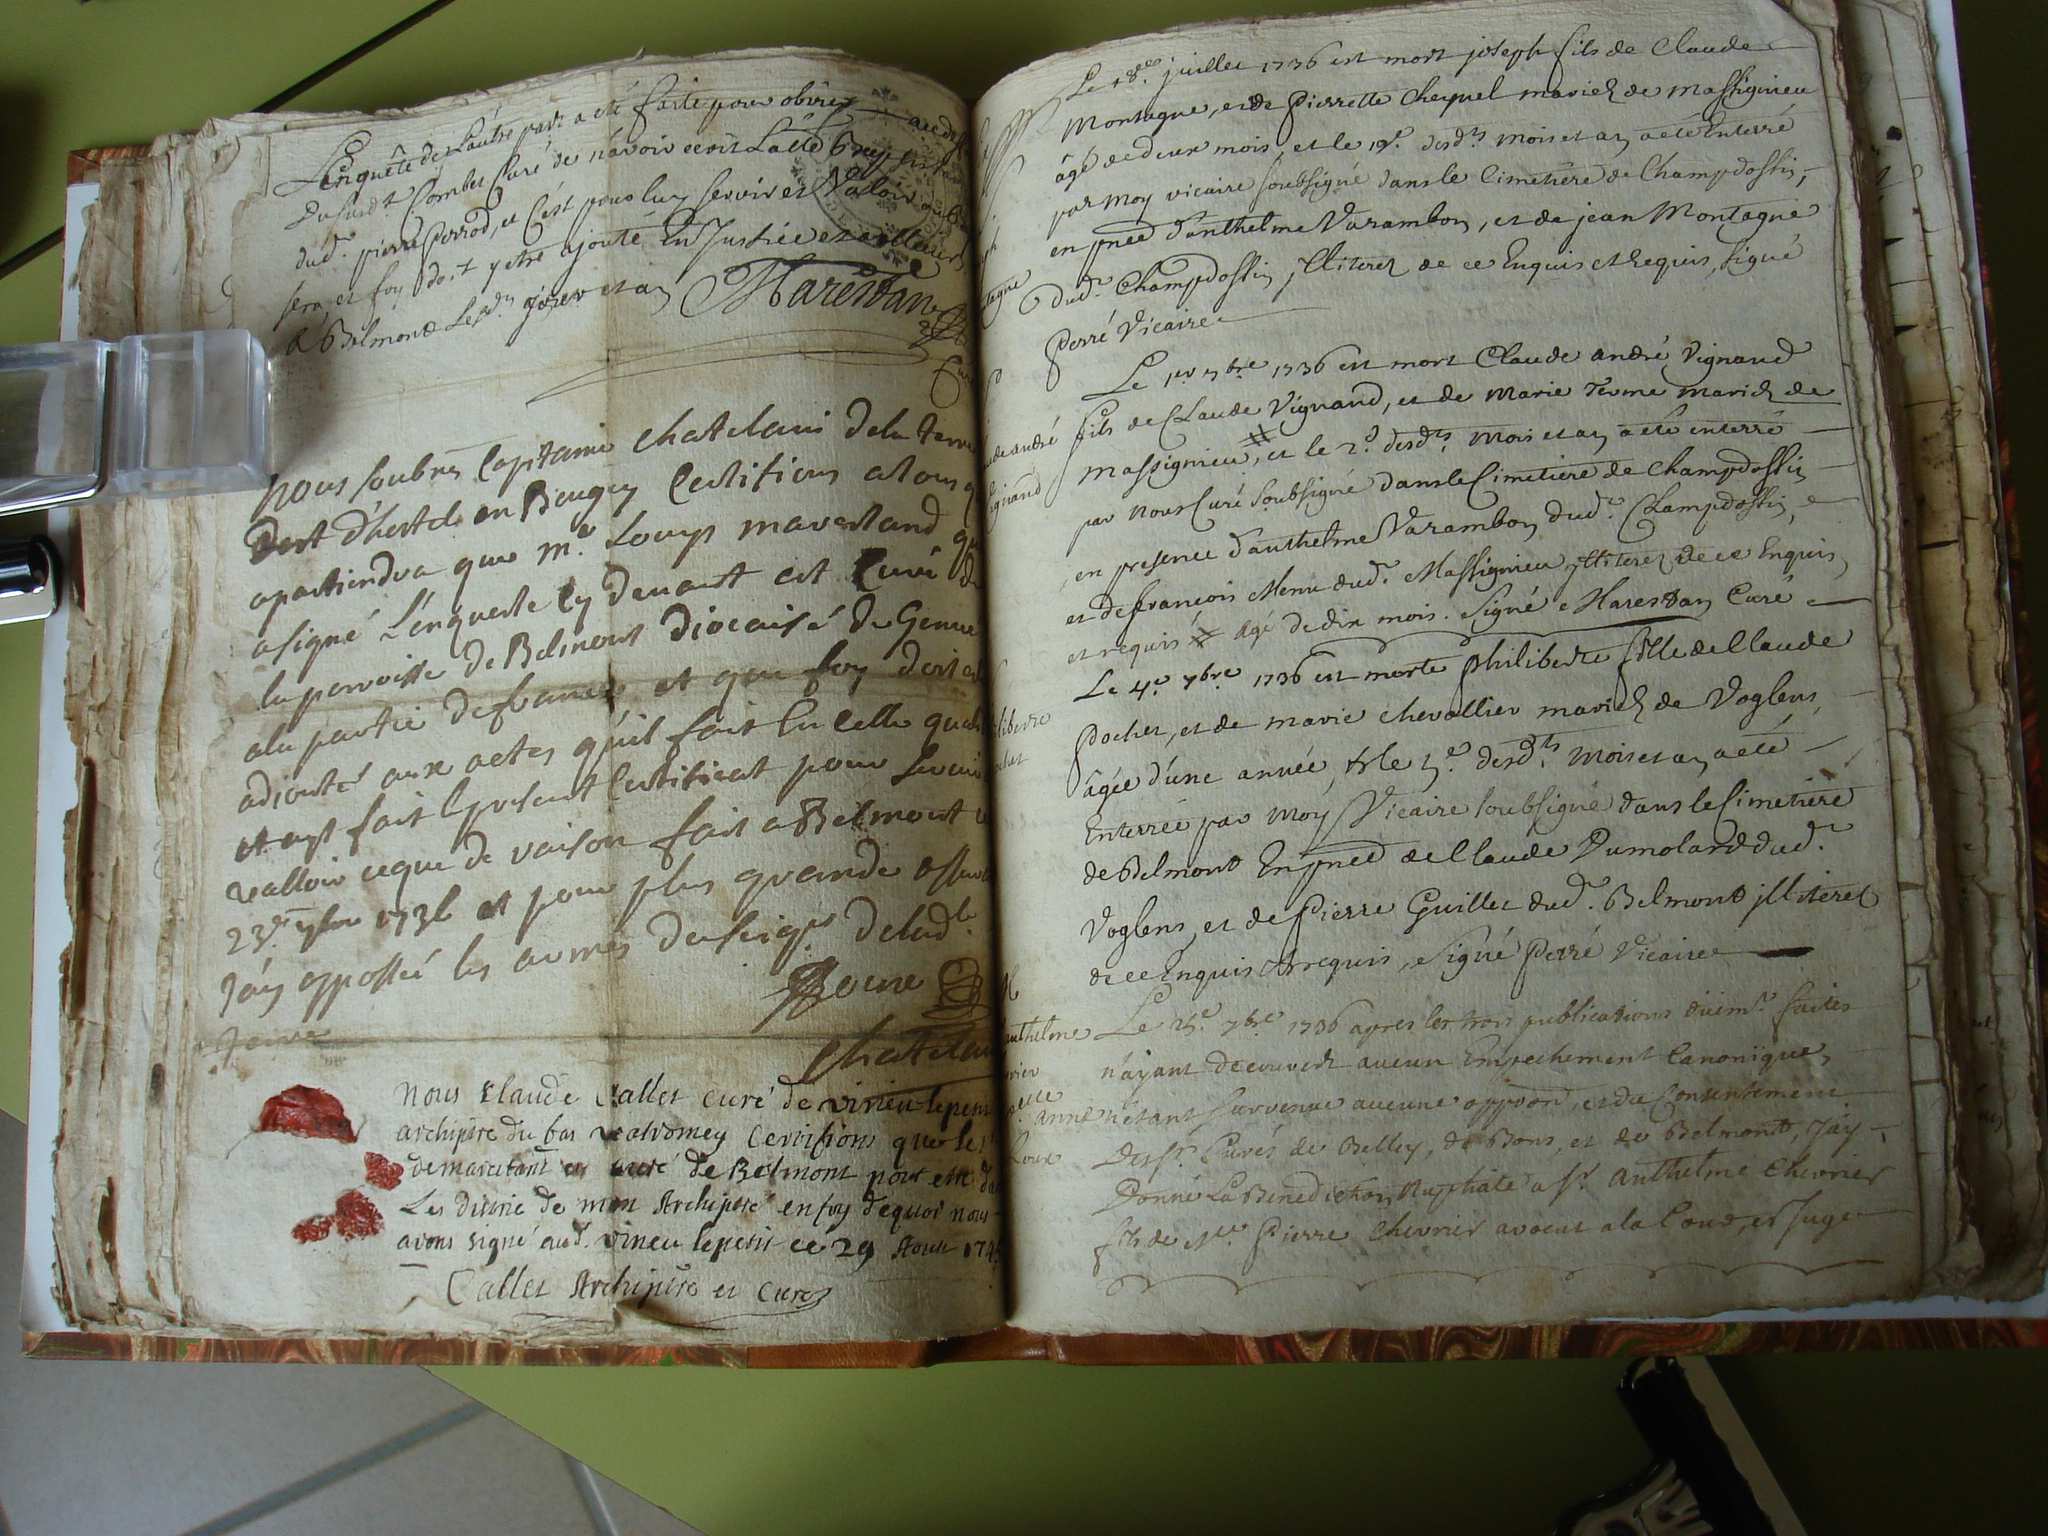 L'Enquête de l'autre part a été faite pour obvier
du Sieur Combet Curé de n'avoir ecrit L'acte
dud. pierre perrod, et C'est pour luy servir et Valoir
sera, et foy doit y etre ajouté En Justice et ailleurs
a Belmond Le et an Marestan
Curé
Nous soubnes Capitaine chatelain dela terre
d'hostel en Beugey Certifions atous
apartiendra que mr. Louys marestand
asigné L'enqueste Cy devant est Curé de
la parroisse de Belmont Diocaise De Geneve
ala partie defrance et que foy doit
adjouter aux actes qu'il fait En celle qualité
et ayt fait le present Certificat pour servir
valloir ceque de raison fait a Belmont
23e. 1736 et pour plus grande
J'ay apposseé les armes du seigr. deladte.
terre
Chatelain
Nous Claude Callet curé de virieu lepetit
archiptre du bas valromey Certifions que le sr
demarestant est curé de Belmont pour etre
Les District de mon Archiptré en foy dequoi nous
avons signé aud. virieu lepetit ce 29 Aout
Callet Archiptre et Curé
Le 18e. juillet 1736 est mort joseph fils de Claude
Montagne, et de Pierrette Cheynel mariez de Massignieu
âgé de deux mois, et le 19e. desdts mois et an a été Enterré
par Moy vicaire soubsigné dans le Cimetiere de Champdossin,
en pnce d'anthelme Varambon, et de jean Montagne
dudt Champdossin jlliterez de ce Enquis et Requis, Signé
Perré Vicaire
Le 1er 7bre 1736 est mort Claude andré Vignand
fils de Claude Vignand, et de Marie Terme mariez de
Massignieu, # et le 2e. desdts Mois et an a été enterré
par Nous Curé Soubsigné dans le Cimetiere de Champdossin
en presence d'anthelme Varambon dudt. Champdossin,
et de francois Menu dudt. Massignieu jlliterez de ce Enquis
et requis # agé de dix mois. Signé Marestan Curé
Le 4e. 7bre 1736 est morte philiberte fille de Claude
Pochet, et de marie chevallier mariez de Voglens,
âgée d'une année, & le 5e. desdts Mois et an a été
Enterrée par Moy Vicaire soubsigné dans le Cimetiere
de Belmont En pnce de Claude Dumolard dudt.
Voglens, et de Pierre Guillet dudt. Belmont jlliterez
de ce Enquis & requis, Signé Perré Vicaire
Anthelme
Anne
Roux
Le 25e. 7bre 1736 apres les trois publications duëmt. faites
n'ayant decouvert aucun Empechement Canonique,
n'étant survenue aucune oppoon, et du Consentement
des Srs. Curés de Belley, de Bons, et de Belmont, J'ay
Donné La Benediction Nuptiale a Sr. Anthelme Chevrier
fils de Mre Pierre Chevrier avocat a la Cour, et Juge